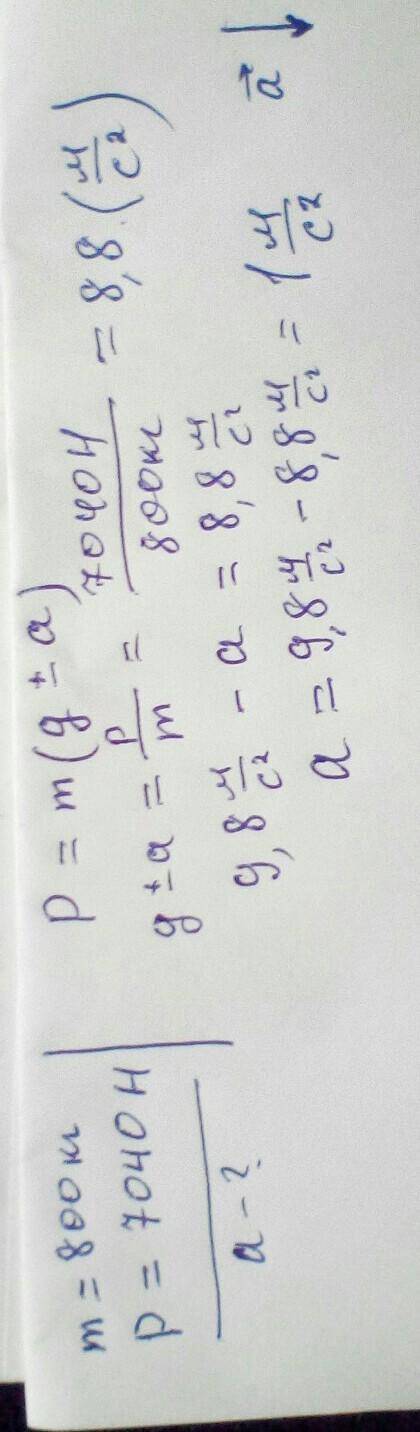 m = 800м
P = 7040 Н
a - ?
P = m(g ± a)
g ± a = P/m = 7040Н/800м = 8,8 (м/с²)
9,8 м/с² - a = 8,8 м/с²
a = 9,8 м/с² - 8,8 м/с² = 1 м/с²
a⃗ ↓